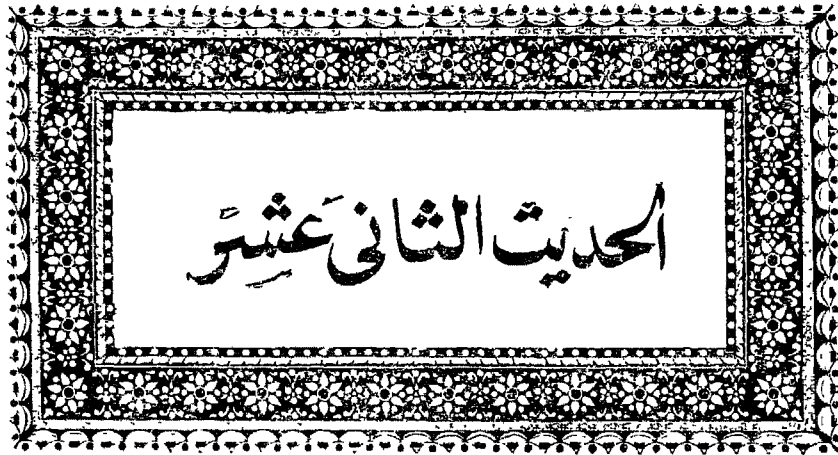 الحديث الثانى عَشِرَ